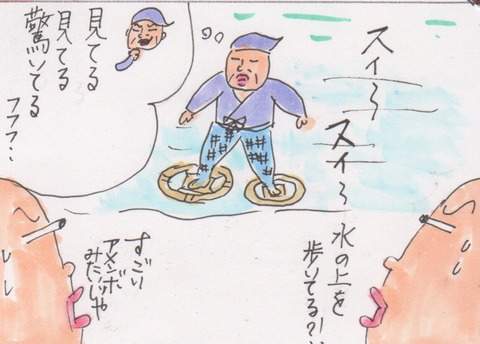 スイ〜
スイ〜
見てる
見てる
驚いてる
フフフ・・
水の上を
歩いてる?!
すごい
アメンボ
みたいじゃ